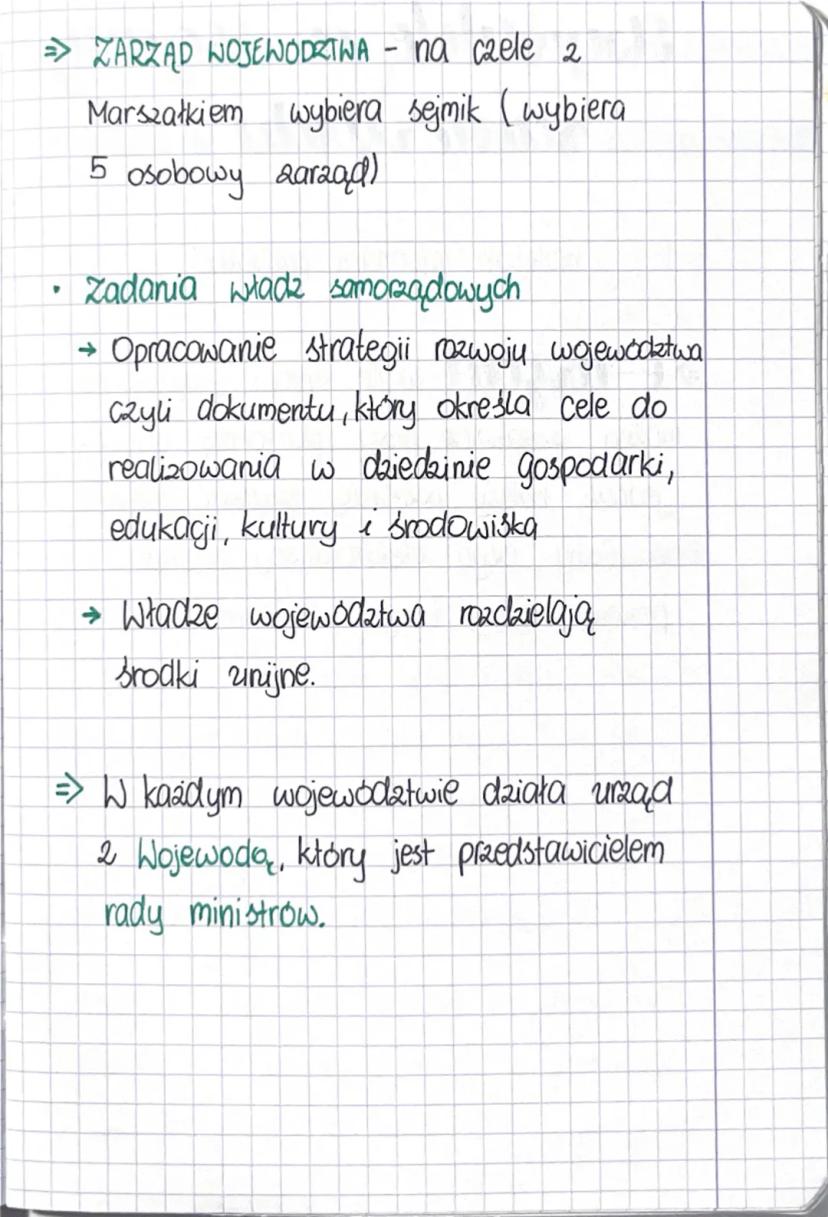 => ZARZĄD WOJEWÓDZTWA - na czele z
Marszałkiem wybiera sejmik (wybiera
5 osobowy zarząd)
• Zadania władz samorządowych
→ Opracowanie strategii rozwoju województwa
czyli dokumentu, który określa cele do
realizowania w dziedzinie gospodarki,
edukacji, kultury i środowiska
→ Władze województwa rozdzielają
środki unijne.
=> W każdym województwie działa urząd
z Wojewodą, który jest przedstawicielem
rady ministrów.